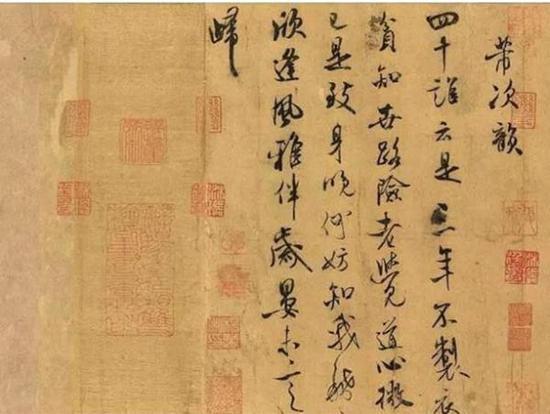 帶次韻
四十誰云是三年不製衣
貧知世路險老覺道心微
已是致身晚何妨知我稀
欣逢風雅伴歲晏未言
歸